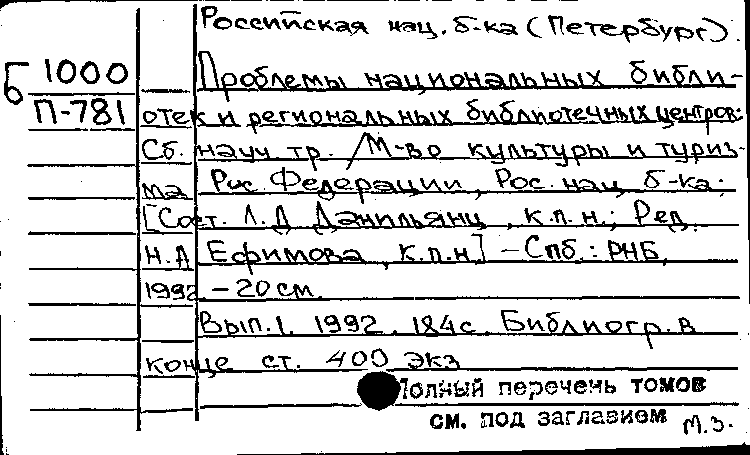 Российская нац. б-ка (Петербург).
Б 1000
П-781
Проблемы национальных библи-
отек и региональных библиотечных центров:
Сб. науч тр. / М-во культуры и туриз-
ма Рос. Федерации, Рос. нац б-ка;
[Сост. Л.Д Данильянц, к.п.н.; Ред.
Н.А Ефимова, к.п.н] – Спб.: РНБ,
1992 – 20 см.
Вып.1. 1992. 184с. Библиогр. в
конце ст. 400 экз
Полный перечень томов
см. под заглавием м.з.